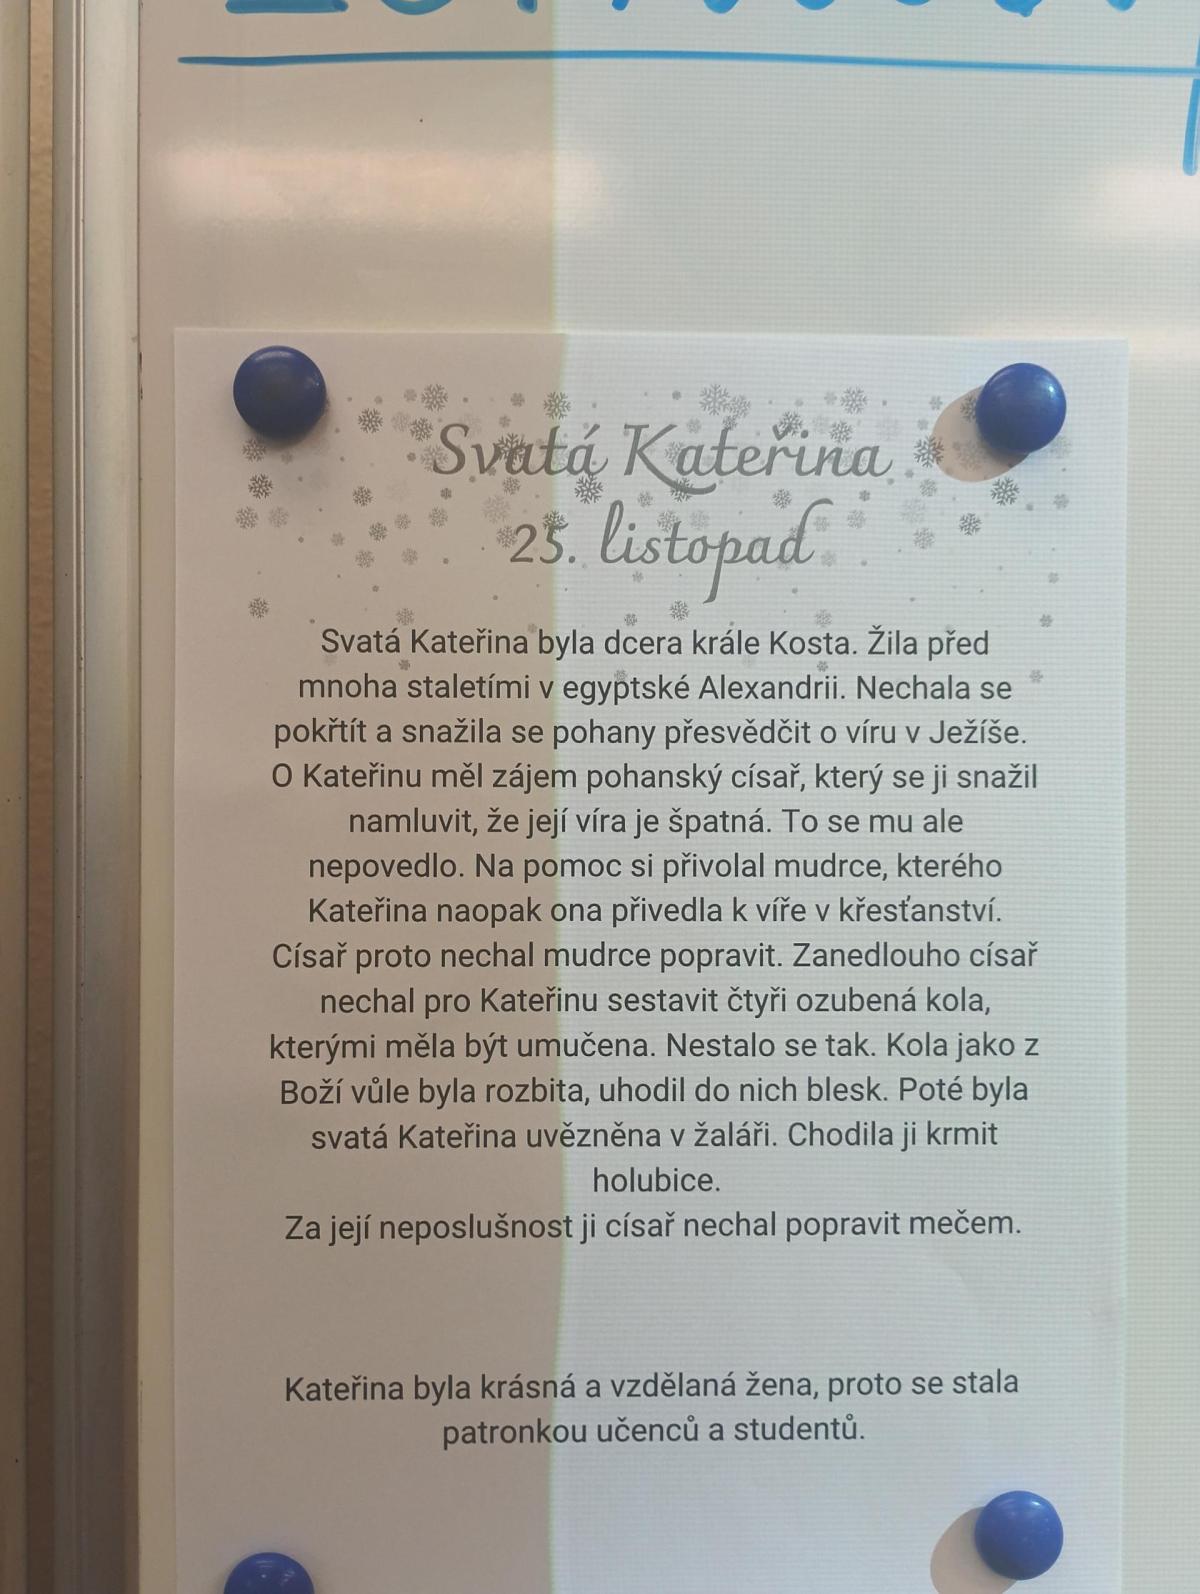 Svatá Kateřina
25. listopad
Svatá Kateřina byla dcera krále Kosta. Žila před
mnoha staletími v egyptské Alexandrii. Nechala se
pokřtít a snažila se pohany přesvědčit o víru v Ježíše.
O Kateřinu měl zájem pohanský císař, který se ji snažil
namluvit, že její víra je špatná. To se mu ale
nepovedlo. Na pomoc si přivolal mudrce, kterého
Kateřina naopak ona přivedla k víře v křesťanství.
Císař proto nechal mudrce popravit. Zanedlouho císař
nechal pro Kateřinu sestavit čtyři ozubená kola,
kterými měla být umučena. Nestalo se tak. Kola jako z
Boží vůle byla rozbita, uhodil do nich blesk. Poté byla
svatá Kateřina uvězněna v žaláři. Chodila ji krmit
holubice.
Za její neposlušnost ji císař nechal popravit mečem.
Kateřina byla krásná a vzdělaná žena, proto se stala
patronkou učenců a studentů.